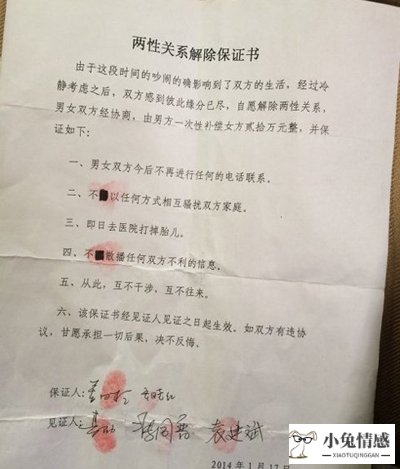 两性关系解除保证书
由于这段时间的吵闹的确影响到了双方的生活，经过冷
静考虑之后，双方感到彼此缘分已尽，自愿解除两性关系，
男女双方经协商，由男方一次性补偿女方贰拾万元整，并保
证如下：
一、男女双方今后不再进行任何的电话联系。
二、不以任何方式相互骚扰双方家庭。
三、即日去医院打掉胎儿。
四、不散播任何双方不利的信息。
五、从此，互不干涉，互不往来。
六、该保证书经见证人见证之日起生效。如双方有违协
议，甘愿承担一切后果，决不反悔。
保证人：
见证人： 袁建斌
2014年1月17日
小兔情感
XIAOTUQINGGAN